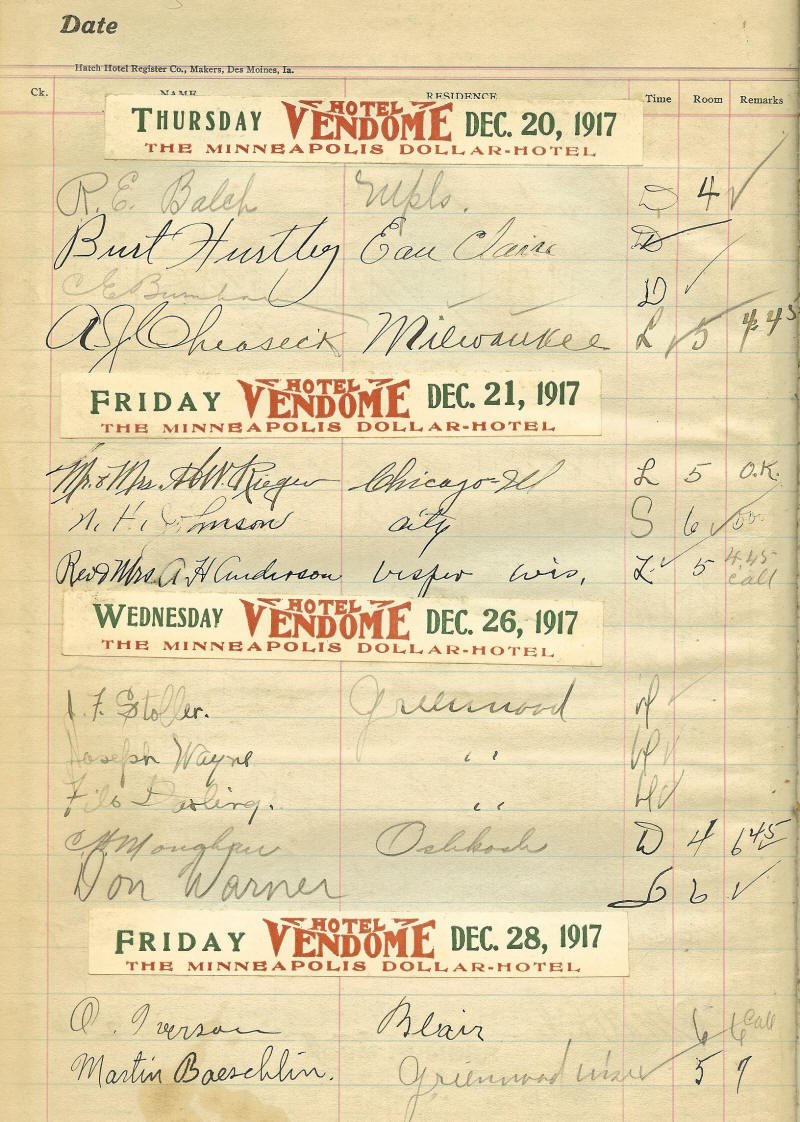 Date
Hatch Hotel Register Co., Makers, Des Moines, Ia.
Ck. NAME RESIDENCE Time Room Remarks
THURSDAY HOTEL VENDOME DEC. 20, 1917
THE MINNEAPOLIS DOLLAR-HOTEL
R. E. Balch Mpls. D 4 ✓
Burt Hurtley Eau Claire D
C E Burnham D ✓
A J Cheaseck Milwaukee L ✓ 5 4 45
FRIDAY HOTEL VENDOME DEC. 21, 1917
THE MINNEAPOLIS DOLLAR-HOTEL
Mr. & Mrs. W. Rieger Chicago-Ill L 5 O.K.
N. H. Johnson City S 6 ✓
Rev & Mrs. A H Anderson Vesper Wis. L ✓ 5 4.45 Call
WEDNESDAY HOTEL VENDOME DEC. 26, 1917
THE MINNEAPOLIS DOLLAR-HOTEL
J. F. Stoller. Greenwood ✓
Joseph Wayne " ✓
Filo Darling. " ✓
Oshkosh D 4 6 45
Don Warner 6 ✓
FRIDAY HOTEL VENDOME DEC. 28, 1917
THE MINNEAPOLIS DOLLAR-HOTEL
O. Iverson Blair 6 6 Call
Martin Baeschlin. Greenwood Wis ✓ 5 7